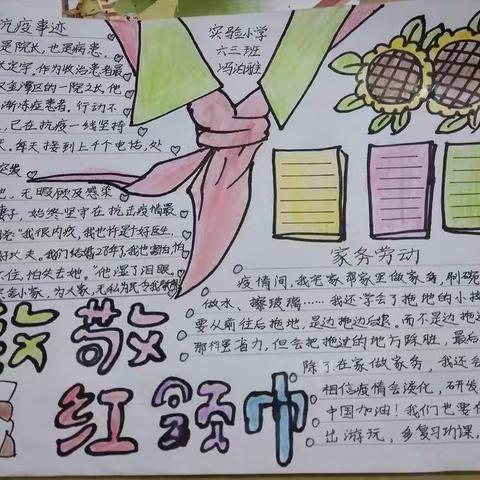 抗疫事迹
是院长,也是病患,
长定宇,作为收治患者最
汉金潭区的一院之长,他
渐冻症患者,行动不
,已在抗疫一线坚持
天。每天接到上千个电话,处
突线
也,无暇顾及感染
妻子,始终坚守在抗击疫情最
"我很内疚,我也许是个好医生,
好丈夫。我们结婚28年了,我也害怕,怕
不住,怕失去她。"他湿了泪眼。
小家,为大家,无私为民
实验小学
六三班
家务劳动
疫情间,我宅家帮家里做家务,刷碗
做水、擦玻璃……我还学会了拖地的小技
要从前往后拖地,是边拖边后退。而不是边拖边
那样更省力,但会把拖过的地方踩脏,最后
除了在家做家务,我还会
相信疫情会淡化,研发
中国加油!我们也要在
出游玩,多复习功课,
致敬
红领巾